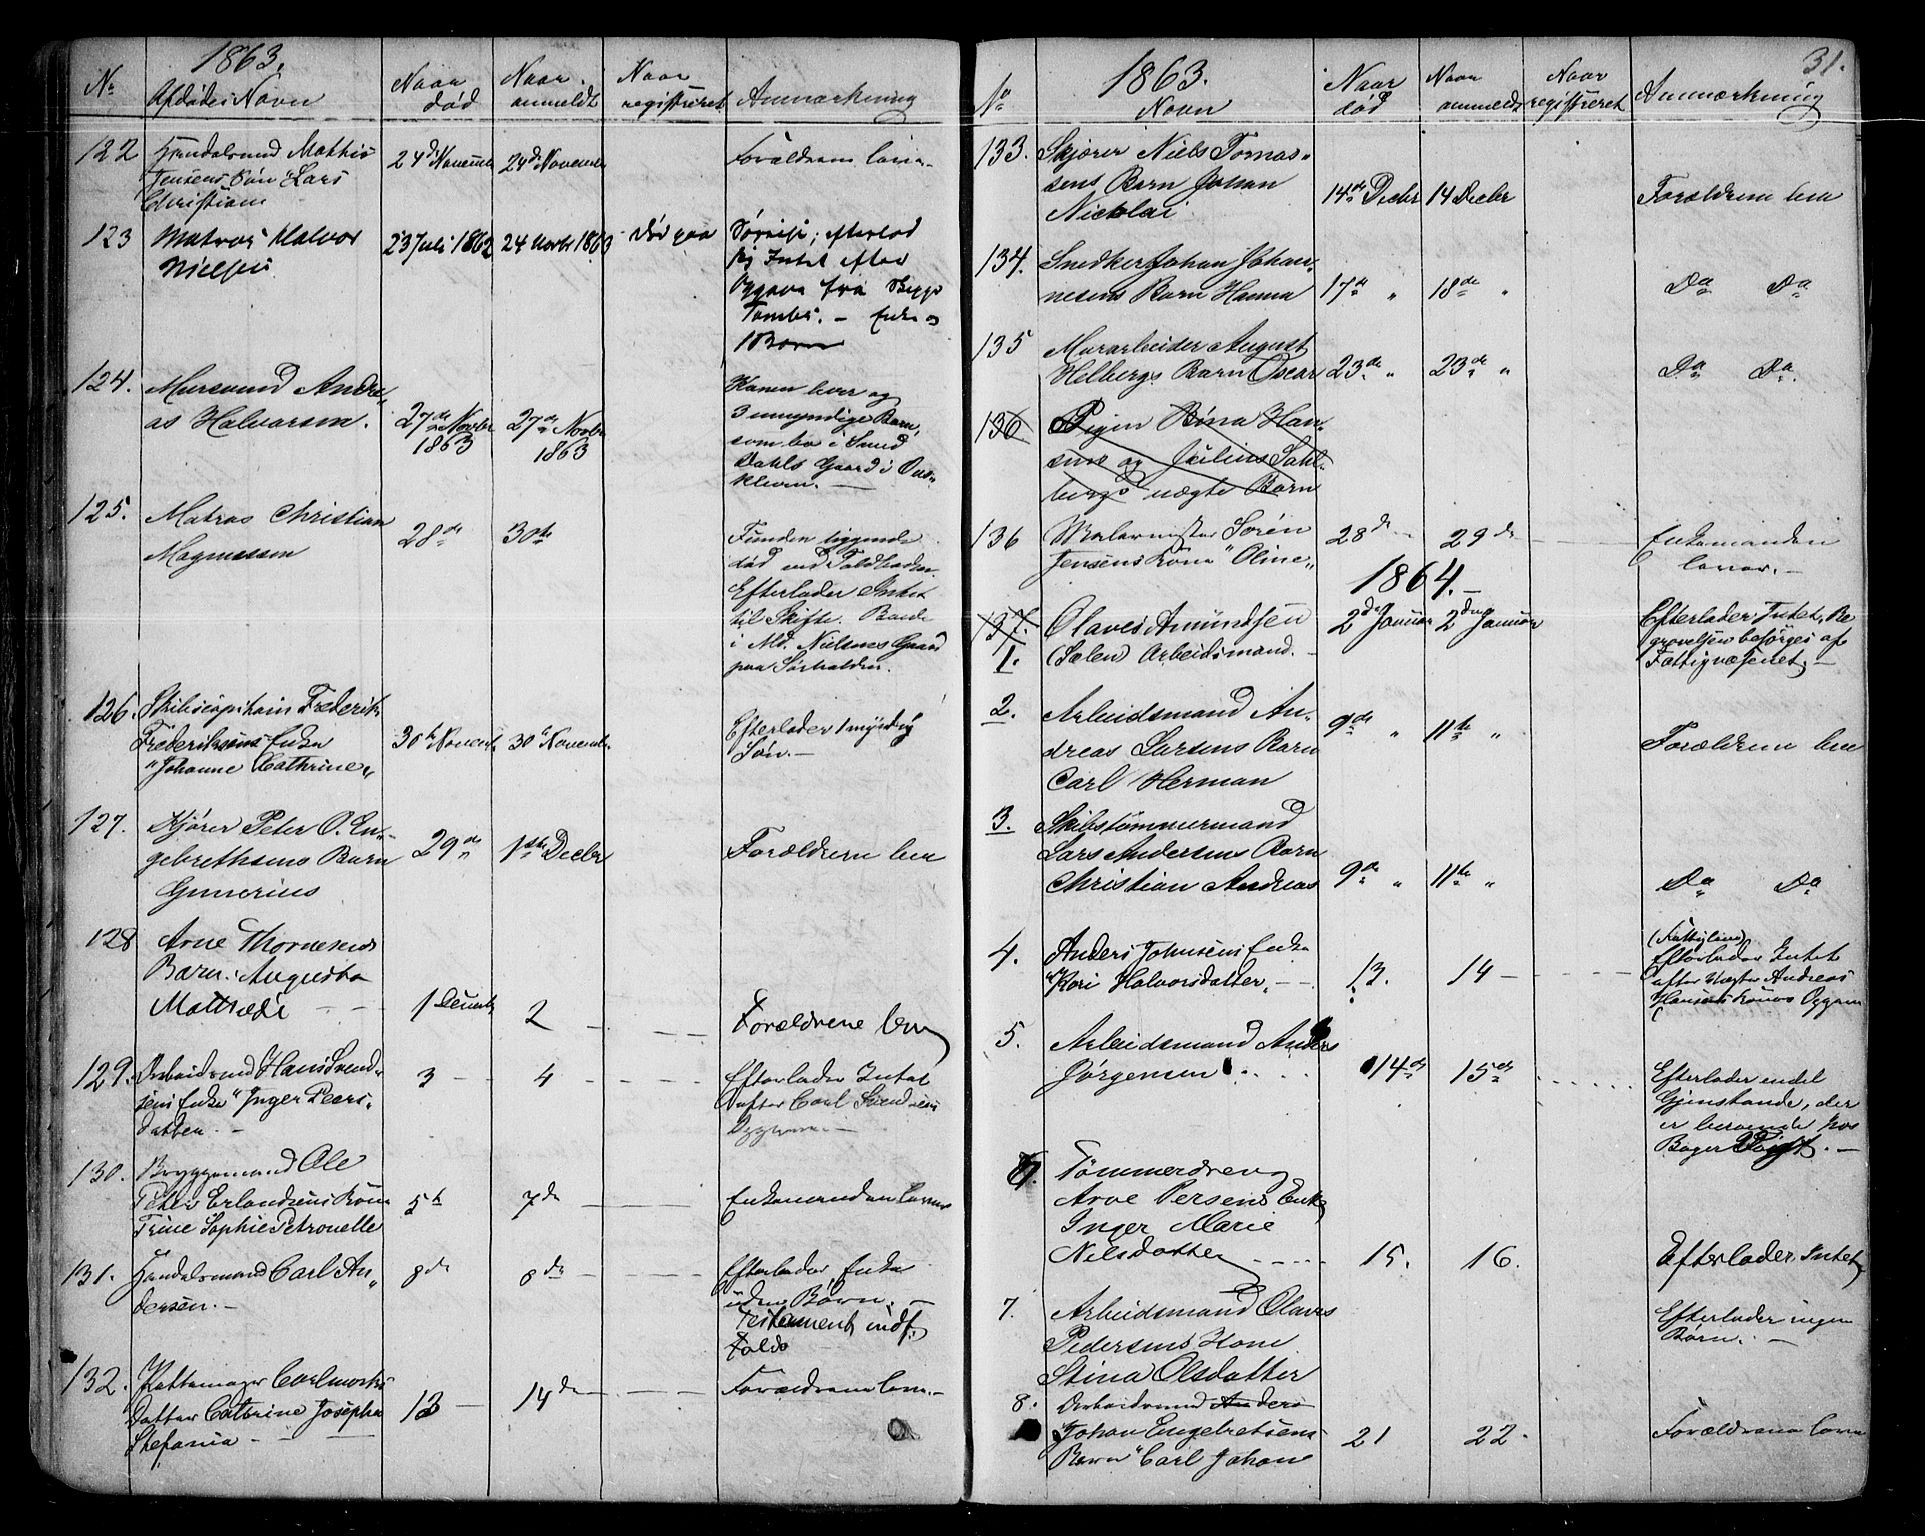 1863.
No Afdødes Navn Naar død Naar anmeldt Naar registreret Anmærkning
122 Handelsmd Mathis
Jensens Søn "Lars
Christian 24d Novemb 24d Novemb Forældrene leve.
123 Matros Halvor
Nielsen 23 Juli 1862 24 Novbr 1863 død paa
Søreise; efterlod
sig Intet efter
Opgave fra
Enke og
1 Barn
124. Muursvend Andre„
as Halvorsen. 27de Novbr 1863 27de Novbr 1863
Konen lever og
3 umyndige Børn,
som bo i Smed
Dahls Gaard i
125. Matros Christian
Magnussen 28de 30te
Funden liggende
død ved Toldboden.
Efterlader Intet
til Skifte. Boede
i Md. Nielsens Gaard
paa
126. Skibscapitain Frederik
Frederiksens Enke
"Johanne Cathrine„ 30te Novemb 30te Novemb
Efterlader 1 myndig
Søn.—
127. Kjører Peter O. En„
gebrethsens Barn
Gunerius 29de 1ste Decbr Forældrene leve
128 Arne Thornesens
Barn: Augusta
Mathilde 1 Decemb 2 Forældrene leve
129. Arbeidsmd Hans Svend„
sens Enke "Inger Peers„
datter.— 3 4
Efterlader Intet
efter Carl Svendsens
Opgave.—
130. Bryggemand Ole
Peter Erlandsens Kone
Trine Sophie Petronelle 5te 7de Enkemanden lever
131. Handelsmand Carl An„
dersen.— 8de 8de
Efterlader Enke
uden Børn.—
Testament indf.
132. Carl
Datter Cathrine Josepha
Stefania 13 14de Forældrene leve.—
1863. 31.
No Navn Naar død Naar anmeldt Naar registreret Anmærkning
133. Skjører Niels Tornas„
sens Barn Johan
Nicolai 14de Decbr 14 Decbr Forældrene leve
134. Snedker Johan Johan„
nesens Barn Hanna 17de " 18de " Do Do
135 Murarbeider August
Helbergs Barn Oscar 23de " 23de " Do Do
136 Pigen Bina Han„
sens og Julius Sahl„
bergs uægte Barn
136 Malermester Søren
Jensens Kone "Oline„ 28de 29de Enkemanden
lever.—
1864.—
137. Olaves Amundsen
1. (Sælen) Arbeidsmand. 2de Januar 2den Januar
Efterlader Intet, Be
gravelsen besørges af
Fattigvæsenet.—
2. Arbeidsmand An„
dreas Larsens Barn
Carl Herman 9de " 11te " Forældrene leve
3. Skibstømmermand
Lars Andersens Barn
Christian Andreas 9de " 11te " Do Do
4. Anders Johnsens Enke
"Kari Halvorsdatter. 13. 14
(Fattiglem)
Efterlader Intet
efter Andreas
Hansens Kones Opgave
5. Arbeidsmand Anders
Jørgensen 14de 15de
Efterlader endel
Gjenstande, der
er beroende hos
Bager Voigt.—
6. Tømmerdreng
Arve Persens Enke
Inger Marie
Nilsdatter 15. 16. Efterlader Intet
7. Arbeidsmand Olaves
Pedersens Kone
Stina Olsdatter
Efterlader ingen
Børn.—
8. Arbeidsmd Anders
Johan Engebretsens
Barn "Carl Johan 21 22. Forældrene leve